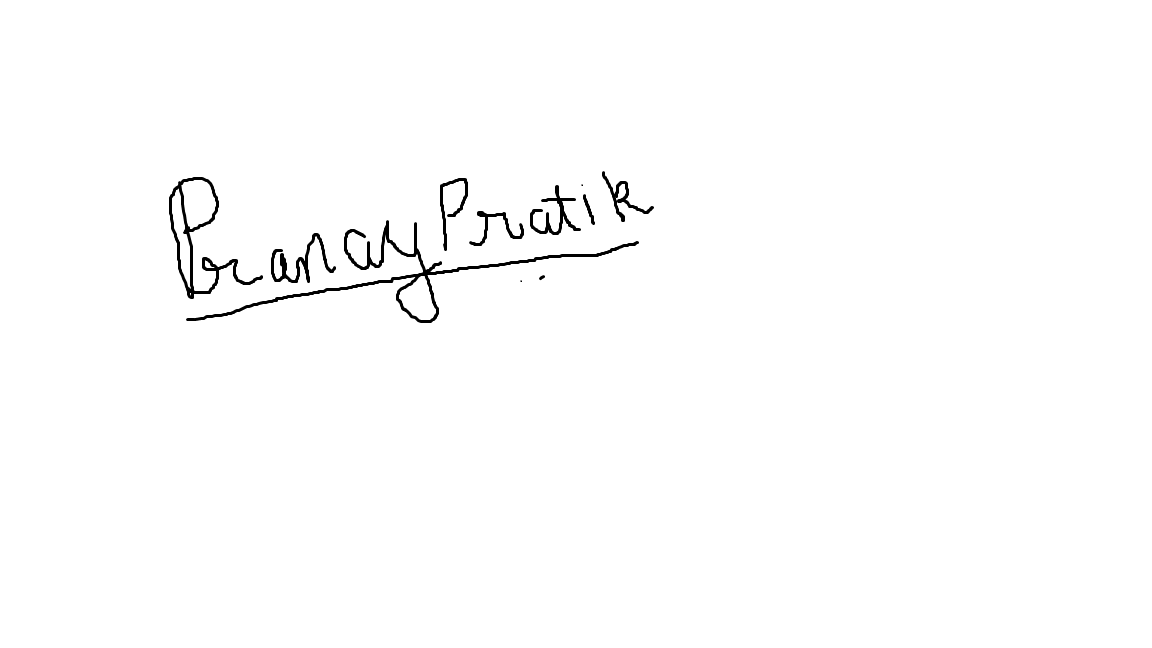 Pranay Pratik